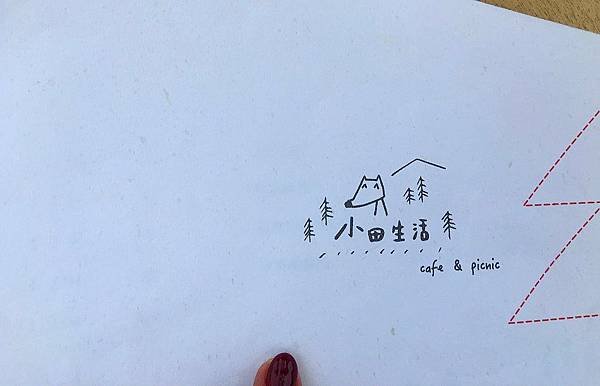 小田生活
cafe & picnic